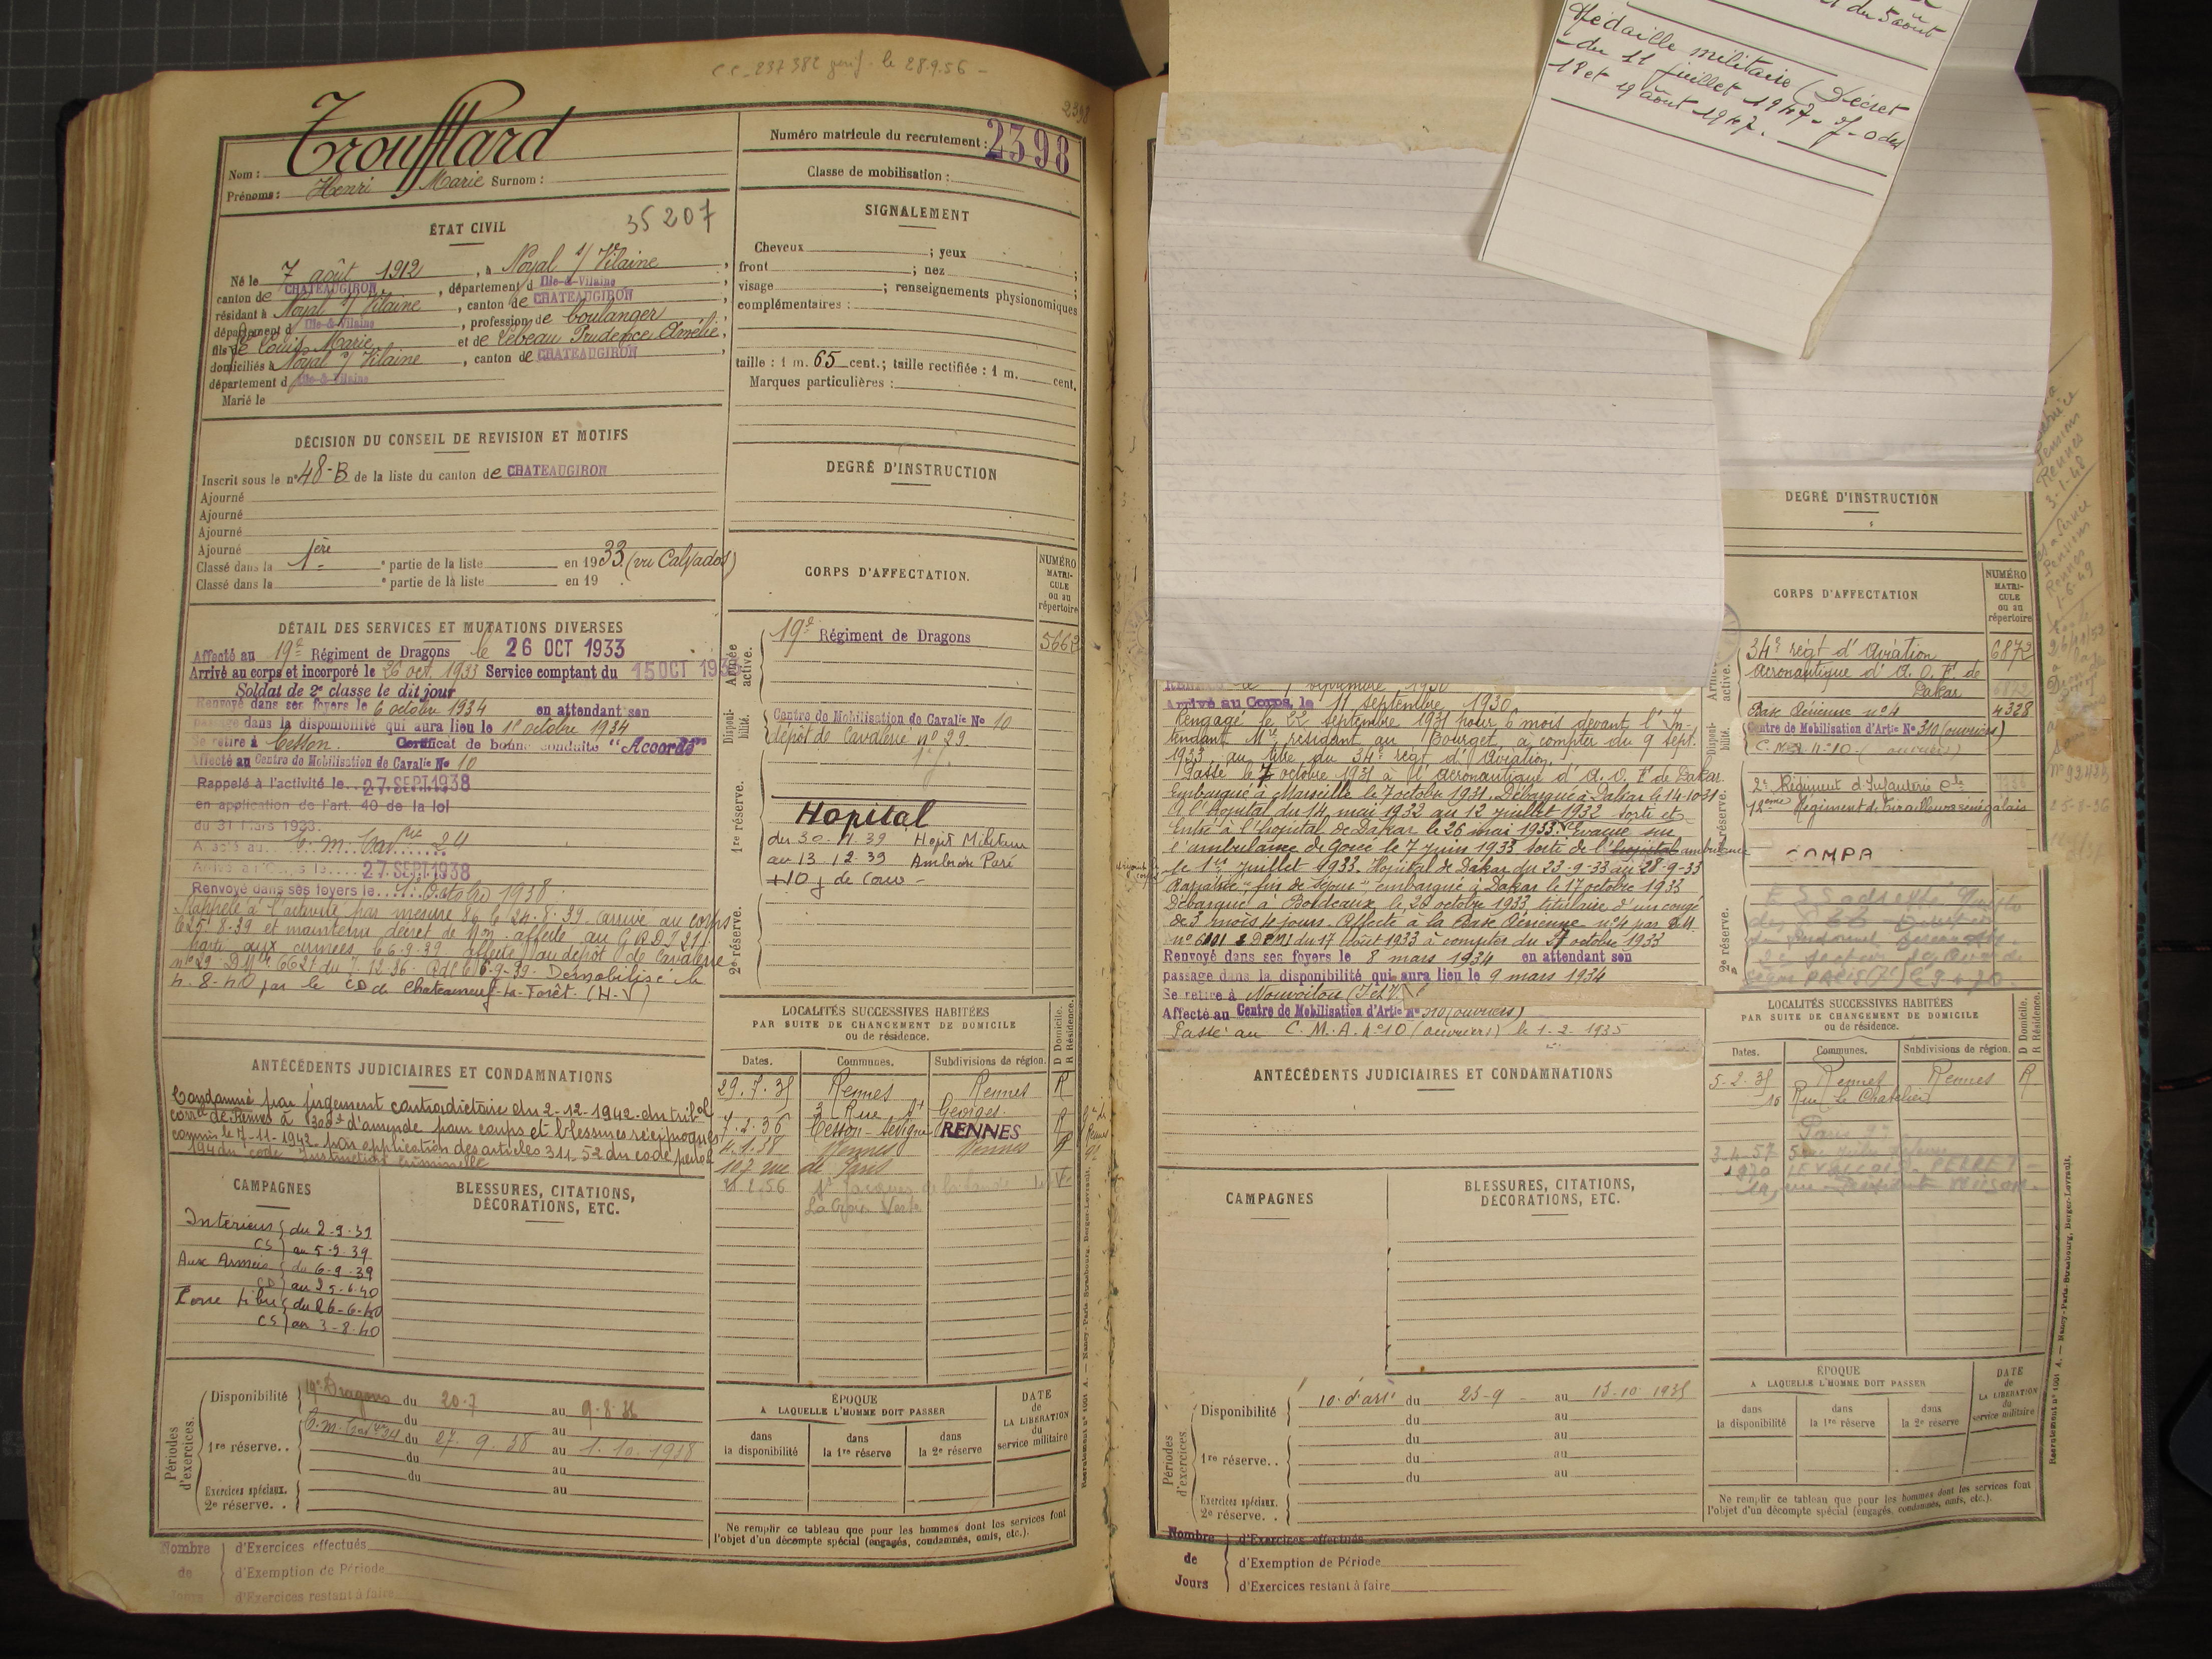 C C_237 382 le 28.9.56 -
2398
Nom : Troufflard
Prénoms : Henri Marie Surnom :
Numéro matricule du recrutement : 2398
Classe de mobilisation :
ÉTAT CIVIL
35207
Né le 7 août 1912, à Noyal s/ Vilaine,
canton de CHATEAUGIRON, département d Ille-&-Vilaine
résidant à Noyal s/ Vilaine, canton de CHATEAUGIRON,
département d Ille-&-Vilaine, profession de boulanger
fils de Louis Marie et de Lebeau Prudence Amélie,
domiciliés à Noyal s/ Vilaine, canton de CHATEAUGIRON,
département d Ille-&-Vilaine
Marié le
SIGNALEMENT
Cheveux ; yeux
front ; nez ;
visage ; renseignements physionomiques
complémentaires :
taille : 1 m. 65 cent.; taille rectifiée : 1 m. cent.
Marques particulières :
DÉCISION DU CONSEIL DE REVISION ET MOTIFS
Inscrit sous le n° 48-B de la liste du canton de CHATEAUGIRON
Ajourné
Ajourné
Ajourné
Ajourné
Classé dans la 1ère partie de la liste en 1933 (vu Calvados)
Classé dans la e partie de la liste en 19 .
DEGRÉ D'INSTRUCTION
CORPS D'AFFECTATION.
NUMÉRO
MATRI-
CULE
ou au
répertoire
Armée active.
19e Régiment de Dragons 5662
Disponi-bilité.
Centre de Mobilisation de Cavalie No 10
dépôt de Cavalerie n° 29
1re réserve.
Hopital
du 30 11 39 Hopit Militaire
au 13 12 39 Ambroise Paré
+ 10 j de Conv -
2e réserve.
DÉTAIL DES SERVICES ET MUTATIONS DIVERSES
Affecté au 19e Régiment de Dragons le 26 OCT 1933
Arrivé au corps et incorporé le 26 oct. 1933 Service comptant du 15 OCT 1933
Soldat de 2e classe le dit jour
Renvoyé dans ses foyers le 6 octobre 1934 en attendant son
passage dans la disponibilité qui aura lieu le 15 octobre 1934
Se retire à Cesson. Certificat de bonne conduite "Accordé"
Affecté au Centre de Mobilisation de Cavalie No 10
Rappelé à l'activité le 27 SEPT 1938
en application de l'art. 40 de la loi
du 31 Mars 1933.
27 SEPT 1938
Renvoyé dans ses foyers le 1er Octobre 1938
Rappelé à l'activité par mesure le 24-8-39. arrivé au corps
le 25-8-39 et maintenu, décret de Mon affecté au G R D I 21.
Parti aux armées le 6-9-39 affecté au dépôt de Cavalerie
Démobilisé le
4-8-40 par le CD de Chateauneuf-la-Forêt. (H-V)
ANTÉCÉDENTS JUDICIAIRES ET CONDAMNATIONS
Condamné par jugement contradictoire du 2-12-1942 du tribal
correl de Rennes à 300f d'amende pour coups et blessures réciproques
commis le 7-11-1942 par application des articles 311, 52 du code pénal
194 du code Instruction Criminelle
LOCALITÉS SUCCESSIVES HABITÉES
PAR SUITE DE CHANGEMENT DE DOMICILE
ou de résidence.
D Domicile.
R Résidence.
Dates. Communes. Subdivisions de région.
29.7.35 Rennes Rennes R
3 Rue St Georges
7.2.36 Cesson-Sévigné RENNES R
4.1.38 Rennes Rennes R
107 rue de Paris
21.2.56 St Jacques de la Lande
La Croix Verte
CAMPAGNES
Intérieur du 2-9-39
CS au 5-9-39
Aux Armées du 6-9-39
CD au 25-6-40
Zone libre du 26-6-40
CS au 3-8-40
BLESSURES, CITATIONS,
DÉCORATIONS, ETC.
Périodes d'exercices.
Disponibilité 19e Dragons du 20-7 au 9-8-36
du au
1re réserve.. C.M. Cavie du 27.9.38 au 1.10.1938
du au
du au
Exercices spéciaux.
2e réserve. .
ÉPOQUE
A LAQUELLE L'HOMME DOIT PASSER
DATE
de
LA LIBÉRATION
du
service militaire
dans
la disponibilité
dans
la 1re réserve
dans
la 2e réserve
Ne remplir ce tableau que pour les hommes dont les services font
l'objet d'un décompte spécial (engagés, condamnés, omis, etc.).
Nombre de Jours
d'Exercices effectués
d'Exemption de Période
d'Exercices restant à faire
Recrutement n° 1001 A. — Nancy-Paris-Strasbourg, Berger-Levrault.
du 5 août
Médaille militaire (Décret
du 11 juillet 1947 - J-O des
18 et 19 août 1947.
DEGRÉ D'INSTRUCTION
CORPS D'AFFECTATION
NUMÉRO
MATRI-
CULE
ou au
répertoire
34e régt d'Aviation 6872
Aéronautique d'A. O. F. de
Dakar 6872
Base Aérienne n°4 4328
Centre de Mobilisation d'Artie No 310 (ouvriers)
C.M.A. n° 10 (ouvriers)
2e Régiment d'Infanterie Cle
12ème Régiment de tirailleurs sénégalais
COMPA
1re réserve.
2e réserve.
Arrivé au Corps, le 11 septembre 1930
Rengagé le 22 septembre 1931 pour 6 mois devant l'In-
tendant Mre résidant au Bourget, à compter du 9 sept.
1933 au titre du 34e régt d'aviation.
Passé le 7 octobre 1931 à l'aéronautique d'A. O. F. de Dakar.
Embarqué à Marseille le 7 octobre 1931. Débarqué à Dakar le 14-10-31
A l'hopital du 14 mai 1932 au 12 juillet 1932 sorti et
Entré à l'hopital de Dakar le 26 mai 1933. Evacué sur
l'ambulance de Gorée le 7 juin 1933 sorti de l'hopital ambulance
le 1er juillet 1933. Hopital de Dakar du 23-9-33 au 28-9-33
Rapatrié "fin de séjour" embarqué à Dakar le 17 octobre 1933
Débarqué à Bordeaux le 26 octobre 1933 titulaire d'un congé
de 3 mois 4 jours. Affecté à la Base Aérienne n°4 par DM
du 17 Août 1933 à compter du 27 octobre 1933
Renvoyé dans ses foyers le 8 mars 1934 en attendant son
passage dans la disponibilité qui aura lieu le 9 mars 1934
Se retire à Nouvoitou (I et V)
Affecté au Centre de Mobilisation d'Artie No 310 (ouvriers)
Passé au C. M. A. n°10 (ouvriers) le 1-2-1935
ANTÉCÉDENTS JUDICIAIRES ET CONDAMNATIONS
LOCALITÉS SUCCESSIVES HABITÉES
PAR SUITE DE CHANGEMENT DE DOMICILE
ou de résidence.
D Domicile.
R Résidence.
Dates. Communes. Subdivisions de région.
5-2-35 Rennes Rennes R
10 Rue Le Chatelier
3-4-57
1970 LEVALLOIS-PERRET
CAMPAGNES
BLESSURES, CITATIONS,
DÉCORATIONS, ETC.
Périodes d'exercices.
Disponibilité 10. d'artie du 23-9 au 13-10 1935
du au
du au
1re réserve. . du au
du au
Exercices spéciaux.
2e réserve. .
ÉPOQUE
A LAQUELLE L'HOMME DOIT PASSER
DATE
de
LA LIBÉRATION
du
service militaire
dans
la disponibilité
dans
la 1re réserve
dans
la 2e réserve
Ne remplir ce tableau que pour les hommes dont les services font
l'objet d'un décompte spécial (engagés, condamnés, omis, etc.).
Nombre de Jours
d'Exercices effectués
d'Exemption de Période
d'Exercices restant à faire
Recrutement n° 1001 A. — Nancy-Paris-Strasbourg, Berger-Levrault.